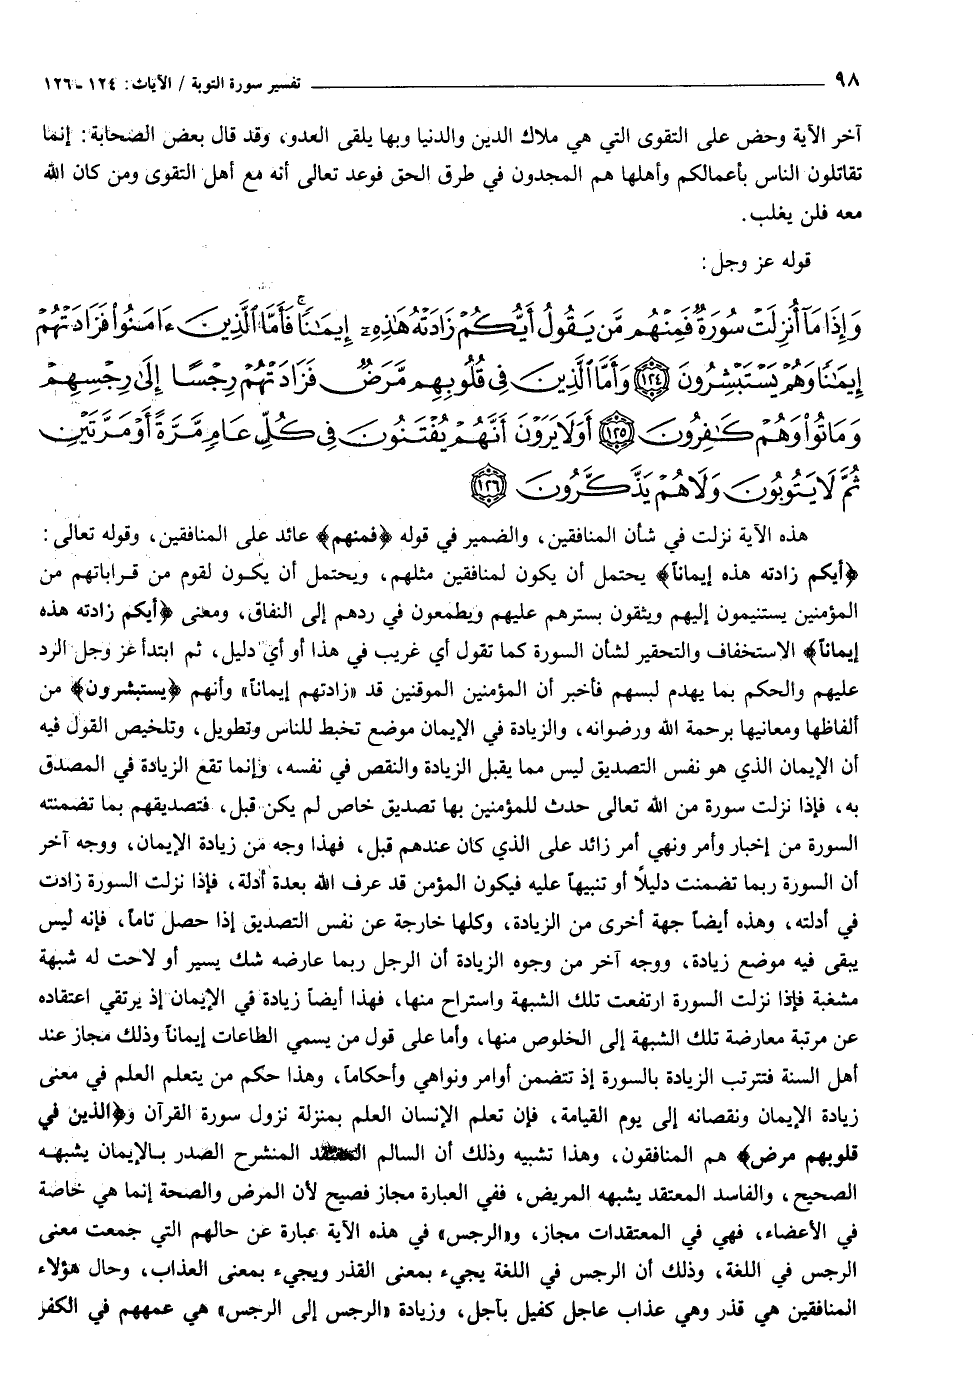 ٩٨ تفسير سورة التوبة / الآيات : ١٢٤ - ١٢٦
آخر الآية وحض على التقوى التي هي ملاك الدين والدنيا وبها يلقى العدو، وقد قال بعض الصحابة : إنما
تقاتلون الناس بأعمالكم وأهلها هم المجدون في طرق الحق فوعد تعالى أنه مع أهل التقوى ومن كان الله
معه فلن يغلب.
قوله عز وجل :
وَإِذَا مَآ أُنزِلَتْ سُورَةٌ فَمِنْهُم مَّن يَقُولُ أَيُّكُمْ زَادَتْهُ هَٰذِهِۦٓ إِيمَٰنًاۚ فَأَمَّا ٱلَّذِينَ ءَامَنُوا۟ فَزَادَتْهُمْ
إِيمَٰنًا وَهُمْ يَسْتَبْشِرُونَ ﴿١٢٤﴾ وَأَمَّا ٱلَّذِينَ فِى قُلُوبِهِم مَّرَضٌ فَزَادَتْهُمْ رِجْسًا إِلَىٰ رِجْسِهِمْ
وَمَاتُوا۟ وَهُمْ كَٰفِرُونَ ﴿١٢٥﴾ أَوَلَا يَرَوْنَ أَنَّهُمْ يُفْتَنُونَ فِى كُلِّ عَامٍ مَّرَّةً أَوْ مَرَّتَيْنِ
ثُمَّ لَا يَتُوبُونَ وَلَا هُمْ يَذَّكَّرُونَ ﴿١٢٦﴾
هذه الآية نزلت في شأن المنافقين، والضمير في قوله ﴿فمنهم﴾ عائد على المنافقين، وقوله تعالى :
﴿أيكم زادته هذه إيماناً﴾ يحتمل أن يكون لمنافقين مثلهم، ويحتمل أن يكون لقوم من قراباتهم من
المؤمنين يستنيمون إليهم ويثقون بسترهم عليهم ويطمعون في ردهم إلى النفاق، ومعنى ﴿أيكم زادته هذه
إيماناً﴾ الاستخفاف والتحقير لشأن السورة كما تقول أي غريب في هذا أو أي دليل، ثم ابتدأ عز وجل الرد
عليهم والحكم بما يهدم لبسهم فأخبر أن المؤمنين الموقنين قد «زادتهم إيماناً» وأنهم ﴿يستبشرون﴾ من
ألفاظها ومعانيها برحمة الله ورضوانه، والزيادة في الإيمان موضع تخبط للناس وتطويل، وتلخيص القول فيه
أن الإيمان الذي هو نفس التصديق ليس مما يقبل الزيادة والنقص في نفسه، وإنما تقع الزيادة في المصدق
به، فإذا نزلت سورة من الله تعالى حدث للمؤمنين بها تصديق خاص لم يكن قبل، فتصديقهم بما تضمنته
السورة من إخبار وأمر ونهي أمر زائد على الذي كان عندهم قبل، فهذا وجه من زيادة الإيمان، ووجه آخر
أن السورة ربما تضمنت دليلاً أو تنبيهاً عليه فيكون المؤمن قد عرف الله بعدة أدلة، فإذا نزلت السورة زادت
في أدلته، وهذه أيضاً جهة أخرى من الزيادة، وكلها خارجة عن نفس التصديق إذا حصل تاماً، فإنه ليس
يبقى فيه موضع زيادة، ووجه آخر من وجوه الزيادة أن الرجل ربما عارضه شك يسير أو لاحت له شبهة
مشغبة فإذا نزلت السورة ارتفعت تلك الشبهة واستراح منها، فهذا أيضاً زيادة في الإيمان إذ يرتقي اعتقاده
عن مرتبة معارضة تلك الشبهة إلى الخلوص منها، وأما على قول من يسمي الطاعات إيماناً وذلك مجاز عند
أهل السنة فتترتب الزيادة بالسورة إذ تتضمن أوامر ونواهي وأحكاماً، وهذا حكم من يتعلم العلم في معنى
زيادة الإيمان ونقصانه إلى يوم القيامة، فإن تعلم الإنسان العلم بمنزلة نزول سورة القرآن و﴿الذين في
قلوبهم مرض﴾ هم المنافقون، وهذا تشبيه وذلك أن السالم المنشرح الصدر بالإيمان يشبهه
الصحيح، والفاسد المعتقد يشبهه المريض، ففي العبارة مجاز فصيح لأن المرض والصحة إنما هي خاصة
في الأعضاء، فهي في المعتقدات مجاز، و«الرجس» في هذه الآية عبارة عن حالهم التي جمعت معنى
الرجس في اللغة، وذلك أن الرجس في اللغة يجيء بمعنى القذر ويجيء بمعنى العذاب، وحال هؤلاء
المنافقين هي قذر وهي عذاب عاجل كفيل بآجل، وزيادة «الرجس إلى الرجس» هي عمههم في الكفر